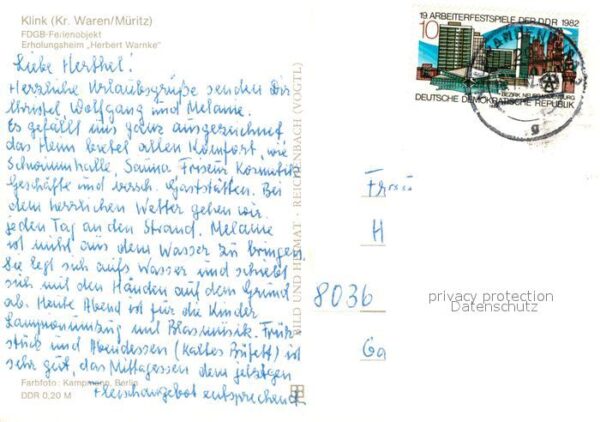 Klink (Kr. Waren/Müritz)
FDGB-Ferienobjekt
Erholungsheim „Herbert Warnke"
Liebe Herthel!
Herzliche Urlaubsgrüße senden Dir
Christel, Wolfgang und Melanie.
Es gefällt uns ganz ausgezeichnet
das Heim bietet allen Komfort, wie
Schwimmhalle, Sauna Friseur Kosmetik
Geschäfte und versch. Gaststätten. Bei
dem herrlichen Wetter gehen wir
jeden Tag an den Strand. Melanie
ist nicht aus dem Wasser zu bringen.
Sie legt sich aufs Wasser und schiebt
sich mit den Händen auf dem Grund
ab. Heute Abend ist für die Kinder
Lampionumzug mit Blasmusik. Früh-
stück und Abendessen (Kaltes Büfett) ist
sehr gut, das Mittagessen dem jetzigen
Fleischangebot entsprechend
Farbfoto: Kampmann, Berlin
DDR 0,20 M
BILD UND HEIMAT · REICHENBACH (VOGTL)
19. ARBEITERFESTSPIELE DER DDR 1982
10
BEZIRK NEUBRANDENBURG
DEUTSCHE DEMOKRATISCHE REPUBLIK
g
Frau
H
8036
Ga
privacy protection
Datenschutz